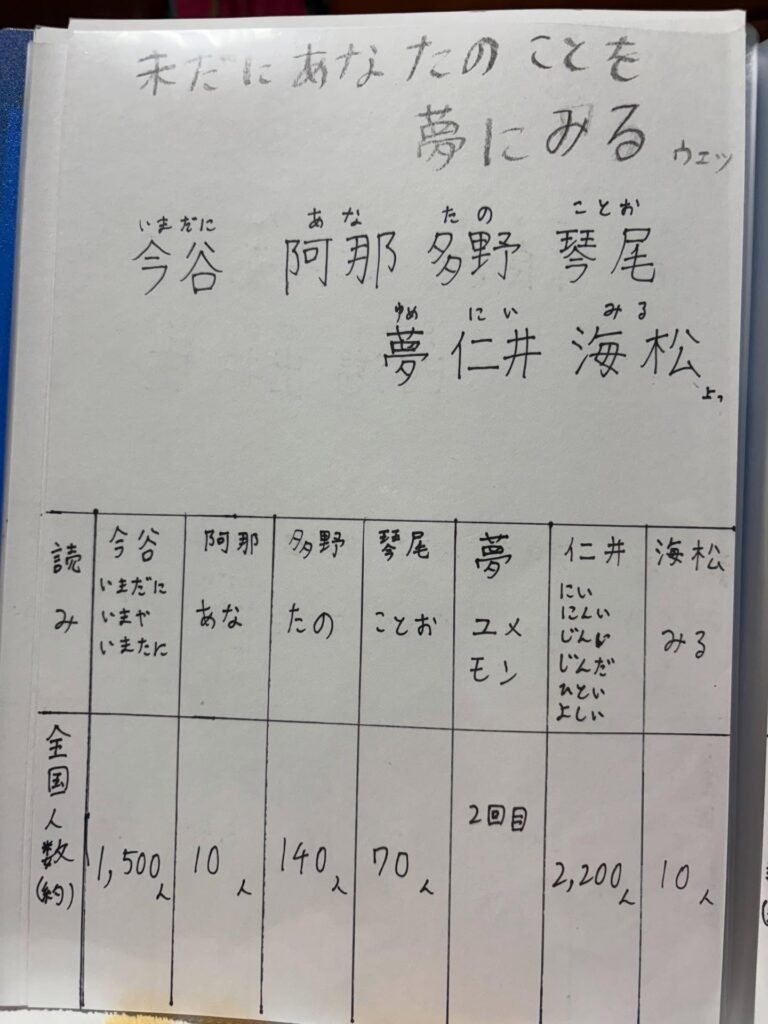 未だにあなたのことを
夢にみる ウェッ
いまだに あな たの ことお
今谷 阿那 多野 琴尾
ゆめ にい みる
夢 仁井 海松 よっ
読み 今谷 阿那 多野 琴尾 夢 仁井 海松
いまだに いまや いまたに あな たの ことお ユメ モン にい にんい じんい じんだ ひとい よしい みる
全国人数(約) 1,500人 10人 140人 70人 2回目 2,200人 10人